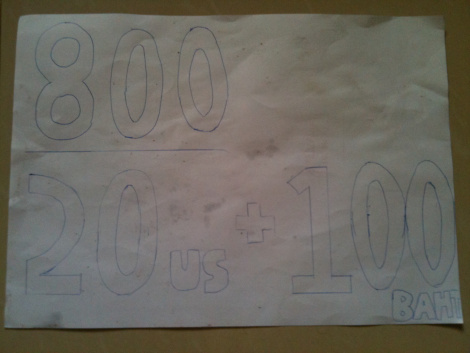 800
20 US + 100
BAHT